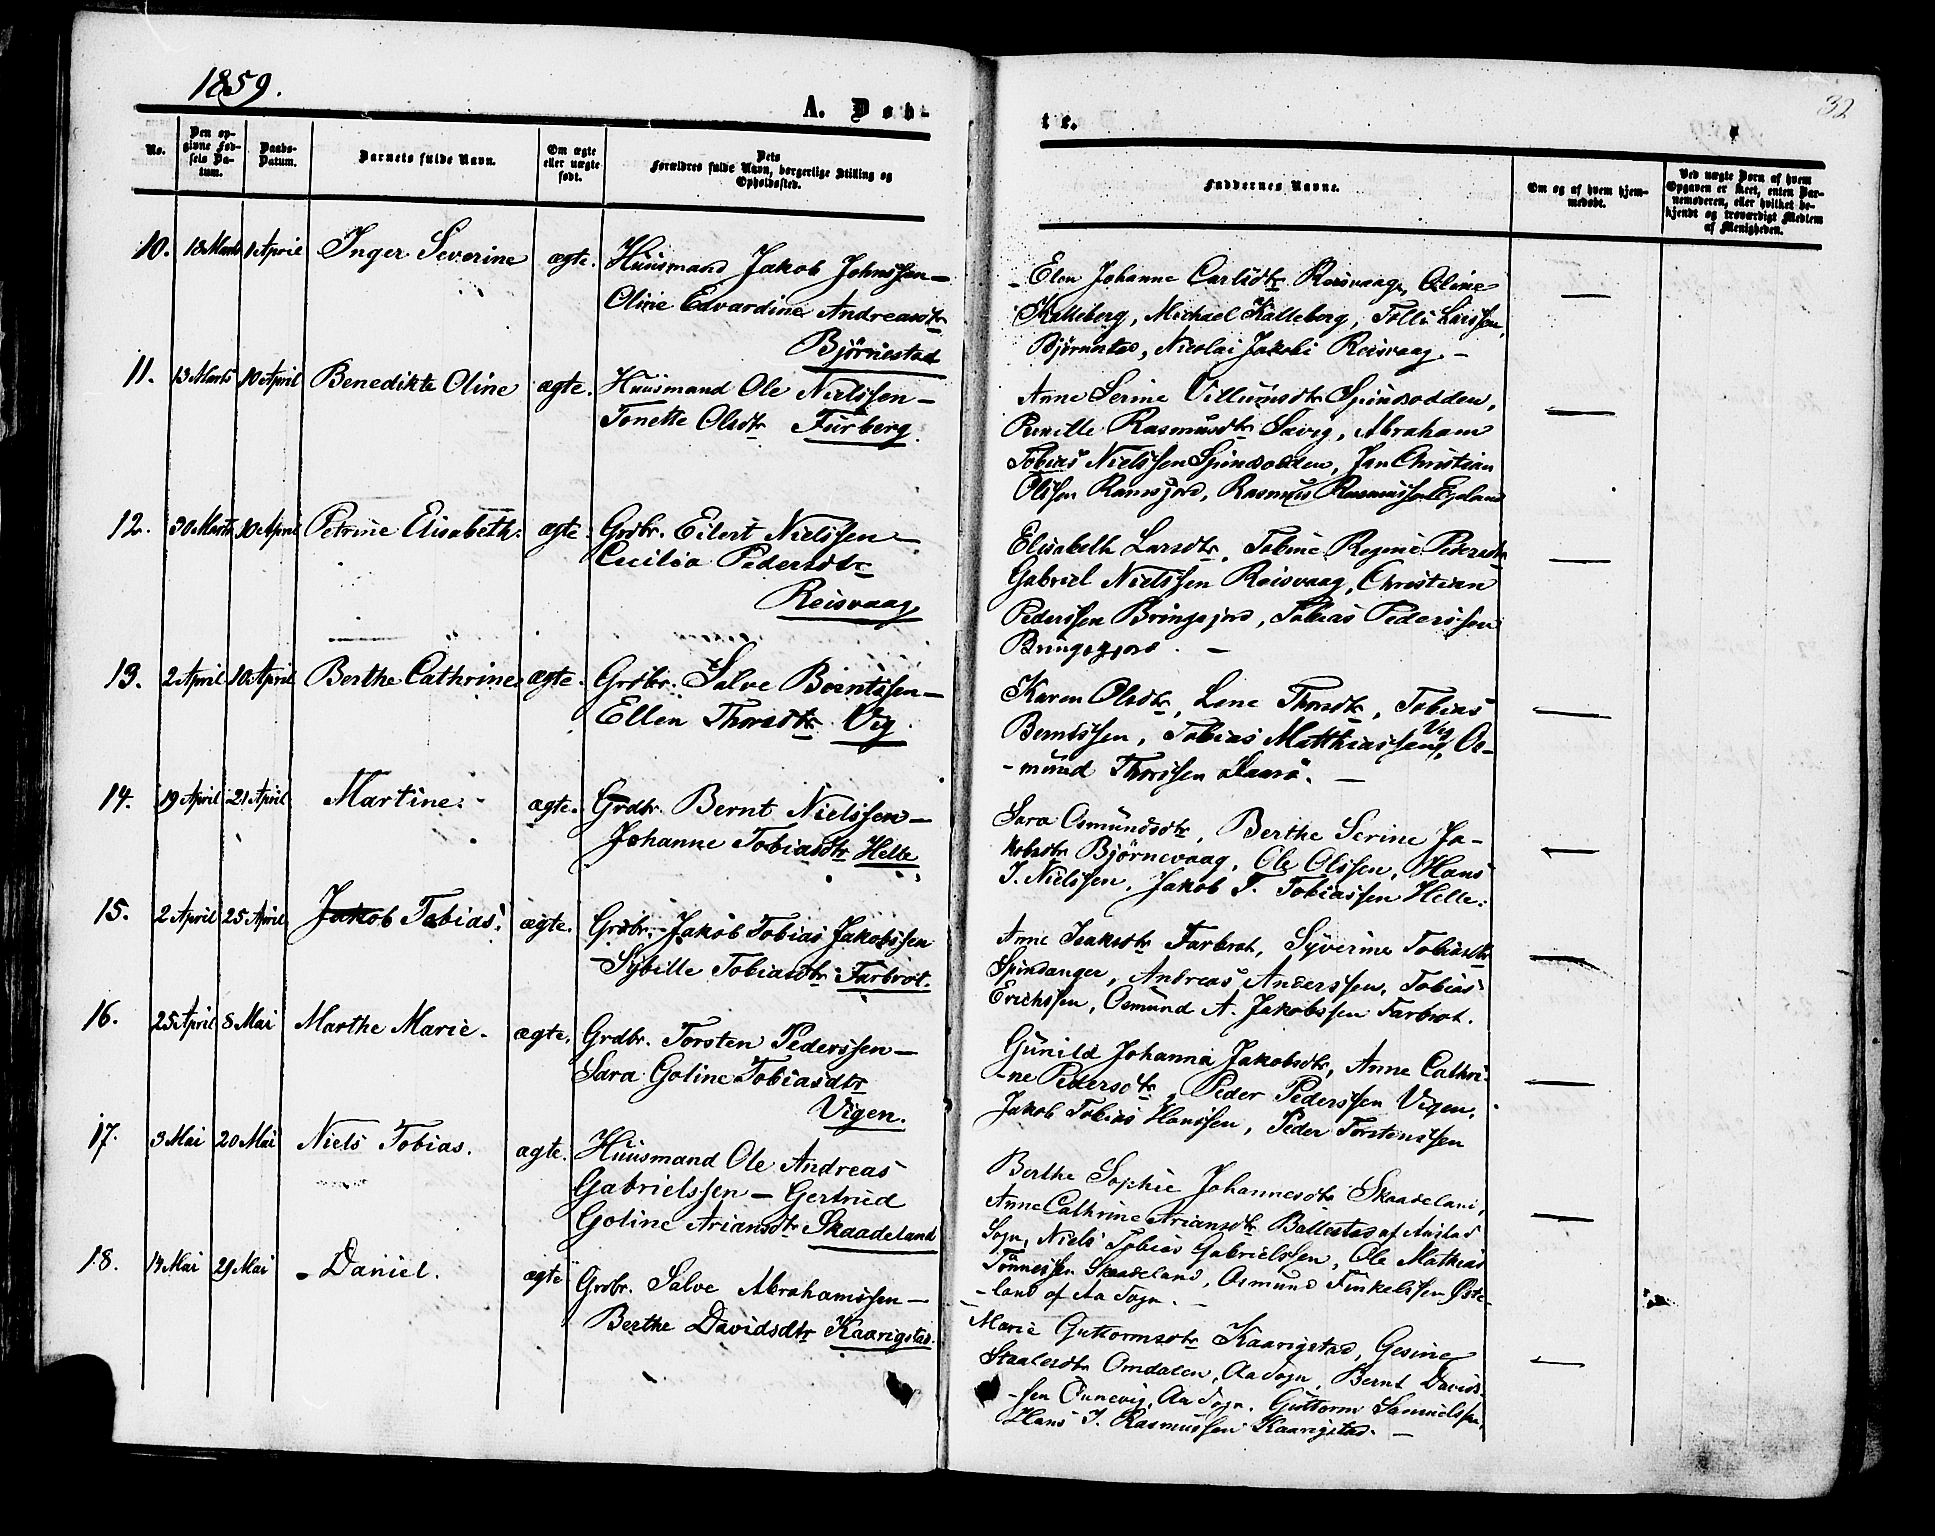 1859.
32
A. Døb-
te.
No.
Den op-
givne Fød-
sels Da-
tum.
Daabs-
Datum.
Barnets fulde Navn.
Om ægte
eller uægte
født.
Dets
Forældres fulde Navn, borgerlige Stilling og
Opholdssted.
Faddernes Navne.
Om og af hvem hjem-
medøbt.
Ved uægte Børn af hvem
Opgaven er skeet, enten Bar-
nemoderen, eller hvilket be-
kjendt og troværdigt Medlem
af Menigheden.
10. 13 Marts 1 April Inger Severine ægte. Huusmand Jakob Johnssen —
Oline Edvardine Andreasdtr
Bjørnestad
Elen Johanne Carlsdtr Reisvaag, Oline
Kalleberg, Michael Kalleberg, Tollii Larssen,
Bjørnestad, Nicolai Jakobi Reisvaag. —
11. 13 Marts 10 April Benedikte Oline ægte. Huusmand Ole Nielssen —
Tonette Olsdtr Furberg.
Anne Serine Villumsdtr Spindsodden,
Rasmusdtr Sævig, Abraham
Tobias Nielssen Spindsodden, Jan Christian
Olssen Ramsjord, Rasmus Rasmussen Egeland
12. 30 Marts 10 April Petrine Elisabeth. ægte. Grdbr. Eilert Nielssen —
Cecilia Pedersdtr
Reisvaag
Elisabeth Larsdtr, Tobine Regine Pedersdtr
Gabriel Nielssen Reisvaag, Christian
Pederssen Bringsjord, Tobias Pederssen
Bringsjord. —
13. 2 April 10 April Berthe Cathrine ægte. Grdbr. Salve Berntssen —
Ellen Thorsdtr Vig.
Karen Olsdtr, Lene Thorsdtr, Tobias
Berntssen, Tobias Matthiassen Vig, Os-
-mund Thorssen —
14. 19 April 21 April Martine. ægte. Grdbr. Bernt Nielssen —
Johanne Tobiasdtr Helle
Sara Osmundsdtr, Berthe Serine Ja-
kobsdtr Bjørnevaag, Ole Olssen, Hans
J. Nielssen, Jakob T. Tobiassen Helle.
15. 2 April 25 April Jakob Tobias. ægte. Grdbr. Jakob Tobias Jakobssen
— Sybille Tobiasdtr Farbrot.
Anne Isaksdtr Farbrot, Syverine Tobiasdtr
Spindanger, Andreas Anderssen, Tobias
Erichssen, Osmund A. Jakobssen Farbrot.
16. 25 April 8 Mai Marthe Marie. ægte. Grdbr. Torsten Pederssen —
Sara Goline Tobiasdtr
Vigen.
Gunild Johanna Jakobsdtr, Anne Cathri-
-ne Pedersdtr, Peder Pederssen Vigen,
Jakob Tobias Hanssen, Peder Torstenssen
17. 3 Mai 20 Mai Niels Tobias. ægte. Huusmand Ole Andreas
Gabrielssen — Gertrud
Goline Ariansdtr Skaadeland
Berthe Sophie Johannesdtr Skaadeland,
Anne Cathrine Ariansdtr Ballestad af
Sogn, Niels Tobias Gabrielssen, Ole Mathias
Tønnessen Skaadeland, Osmund Finkelssen Øste-
-land af Aa Sogn. —
18. 14 Mai 29 Mai Daniel. ægte Grdbr. Salve Abrahamssen —
Berthe Davidsdtr Kaarigstad.
Marie Guttormsdtr Kaarigstad, Gesine
Staalesdtr Omdalen, Aa Sogn, Bernt Davids-
-sen Aa Sogn. Guttorm Samuelssen,
Hans J. Rasmussen Kaarigstad. —